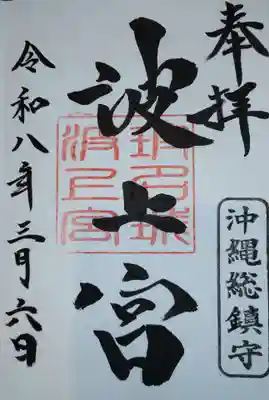 奉拝
沖縄総鎮守
波上宮
令和八年三月六日